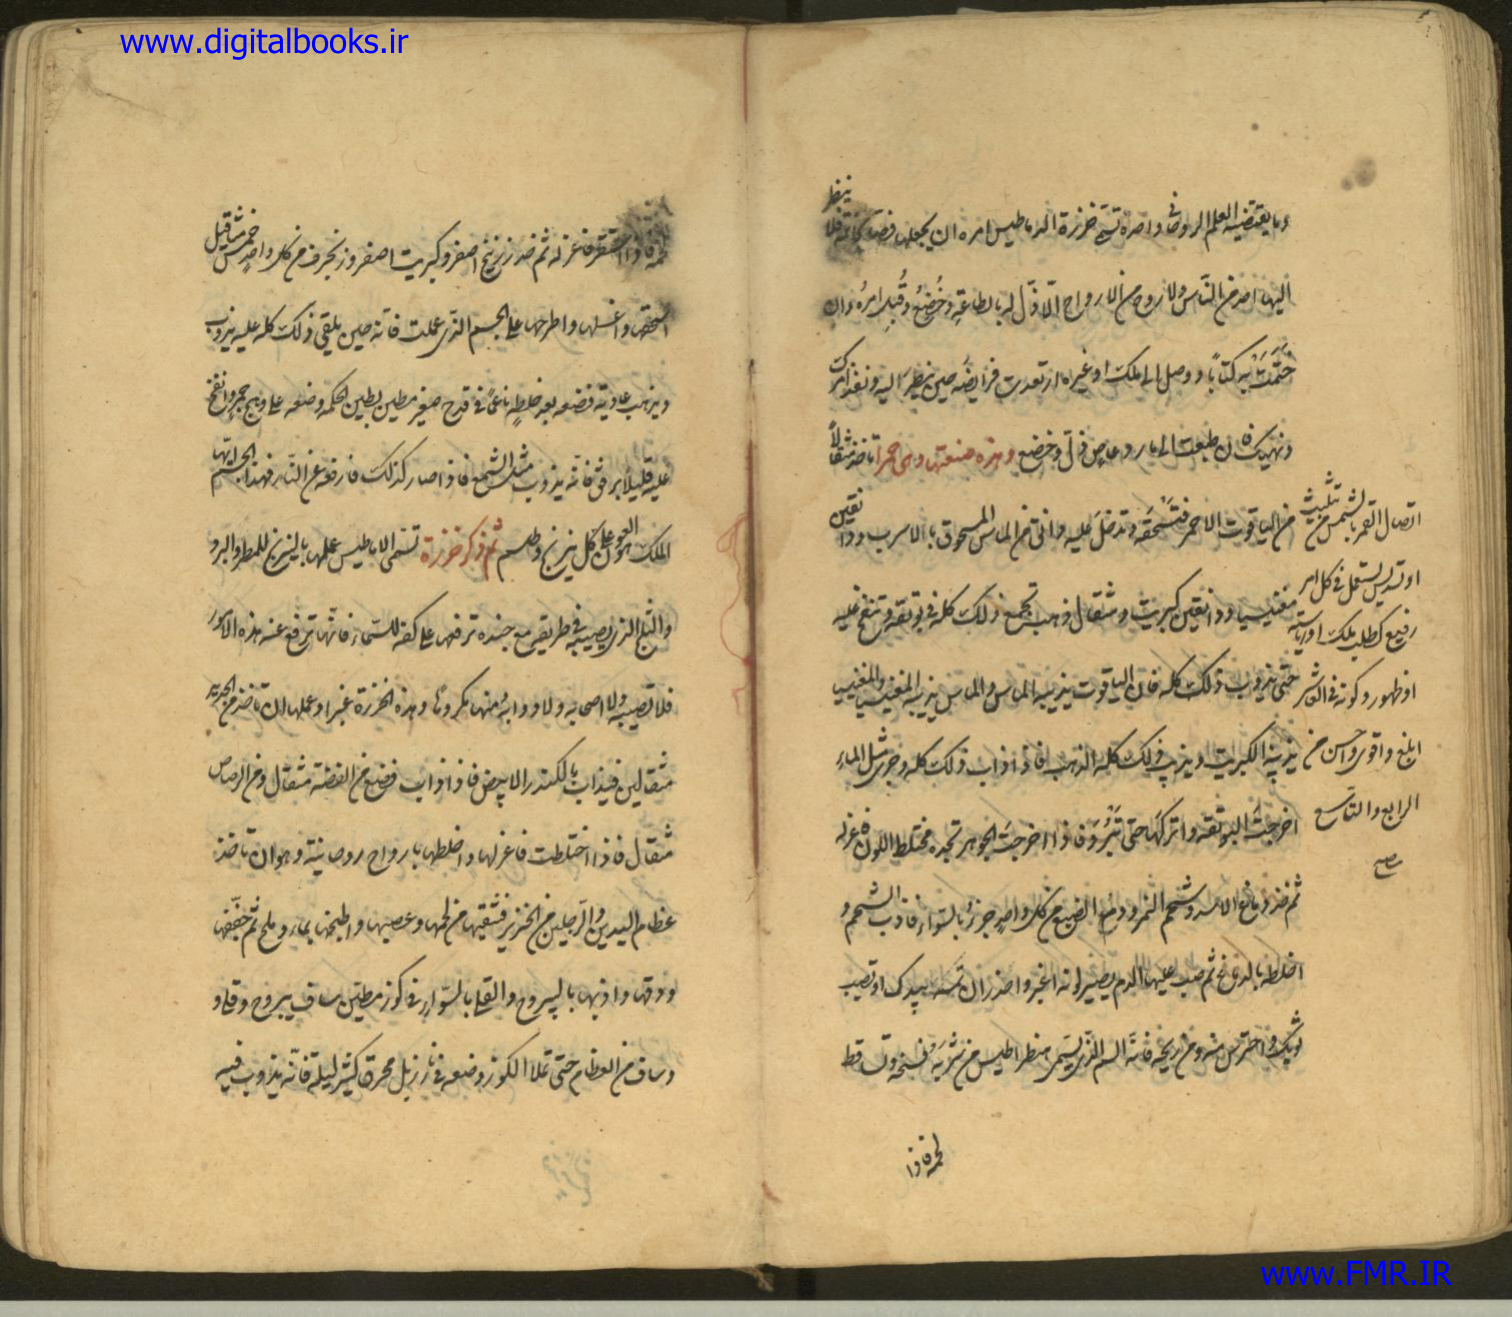 www.digitalbooks.ir
ما يقتضيه العلم الروحاني واحدة تسمى خرزة الدماطيس امره ان يجعلها فص خاتمه فلا ينظر
اليها احد من الناس ولا روح من الارواح الا ذل له بالطاعة وخضع وقبل امره وان
ختمت به كتابا ووصل الى ملك او غيره ارتعدت فرايضه حين ينظر اليه ونفذ امرك
ونهيك فان طبعت الى مارد وعاص ذل وخضع وهذه صنعتها وهي حمرا تاخذ مثقالا
من الياقوت الاحمر فتسحقه وتدخل عليه دانق من الماس المسحوق بالاسرب ودانقين
مغنيسيا ودانقين كبريت ومثقال ذهب تجمع ذلك كله في بوتقة وتنفخ عليه
حتى يذوب ذلك كله فان الياقوت يذيبه الماس والماس يذيبه المغنيسيا والمغنيسيا
يذيبه الكبريت ويذيب ذلك كله الذهب فاذا ذاب ذلك كله وجرى مثل الماء
اخرجت البوتقة واتركها حتى تبرد فاذا اخرجت الجوهر تجده مختلط اللون فاعزله
ثم خذ دماغ الاسد وشحم النمر ودم الضبع من كل واحد جزء بالسواء فاذب الشحم و
اخلطه بالدماغ ثم صب عليها الدم يصير لونه اغبر واحذر ان تمسه بيدك او تصيب
ثوبك واحترس منه ومن ريحه فانه السم الذي يسمى منطراطيس من شربه فسخه وتساقط
لحمه فاذا
اتصال القمر بالشمس من تثليث
او تسديس يستعمل في كل امر
رفيع كطلب ملك او رياسة
او ظهور وكونه في العاشر
ابلغ واقوى واحسن من
الرابع والتاسع
لحمه فاذا استقر فاعزله ثم خذ زرنيخ اصفر وكبريت اصفر وزنجرف من كل واحد خمس مثاقيل
اسحقها واغسلها واطرحها على الجسم الذي عملت فانه حين يلقى ذلك كله عليه يذوب
ويذهب عاديته فضعه بعد خلطه ناعما في قدح صغير مطين بطين الحكمة وضعه على وهج جمر وانفخ
عليه قليلا برفق فانه يذوب مثل الشمع فاذا صار كذلك فارفعه عن النار فهذا الجسم ايها
الملك المعول على كل نيرنج وطلسم ثم ذكر خرزة تسمى الاماطيس عملها بالنيرنج للمطر والبرد
والثلج الذي يصيبه في طريقه مع جنده ترفعها على كفه للسماء فانها ترفع عنه هذه الامور
فلا تصيبه ولا اصحابه ولا دوابه منها مكروها وهذه الخرزة غبرا وعملها ان تاخذ من الحديد
مثقالين فيذاب بالكندر الابيض فاذا ذاب فضع من الفضة مثقال ومن الرصاص
مثقال فاذا اختلطت فاعزلها واخلطها بارواح روحانية وهو ان تاخذ
عظام اليدين والرجلين من الخنزير فتنقيها من لحمها وعصبها واطبخها بماء وملح ثم جففها
ودقها واذبها باليبروح والقلي بالسواء في كوز مطين ساف يبروح وقلي و
وساف من العظام حتى تملا الكوز وضعه في نار زبل محرق كثير ليلة فانه يذوب فيه
www.FMR.IR